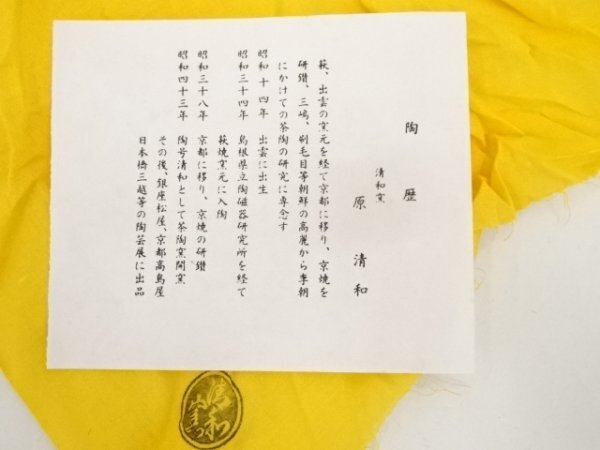 陶歴
清和窯
原清和
萩、出雲の窯元を経て京都に移り、京焼を
研鑽、三嶋、刷毛目等朝鮮の高麗から李朝
にかけての茶陶の研究に専念す
昭和十四年 出雲に出生
昭和三十四年 島根県立陶磁器研究所を経て
萩焼窯元に入陶
昭和三十八年 京都に移り、京焼の研鑽
昭和四十三年 陶号清和として茶陶窯開窯
その後、銀座松屋、京都高島屋
日本橋三越等の陶芸展に出品
清和